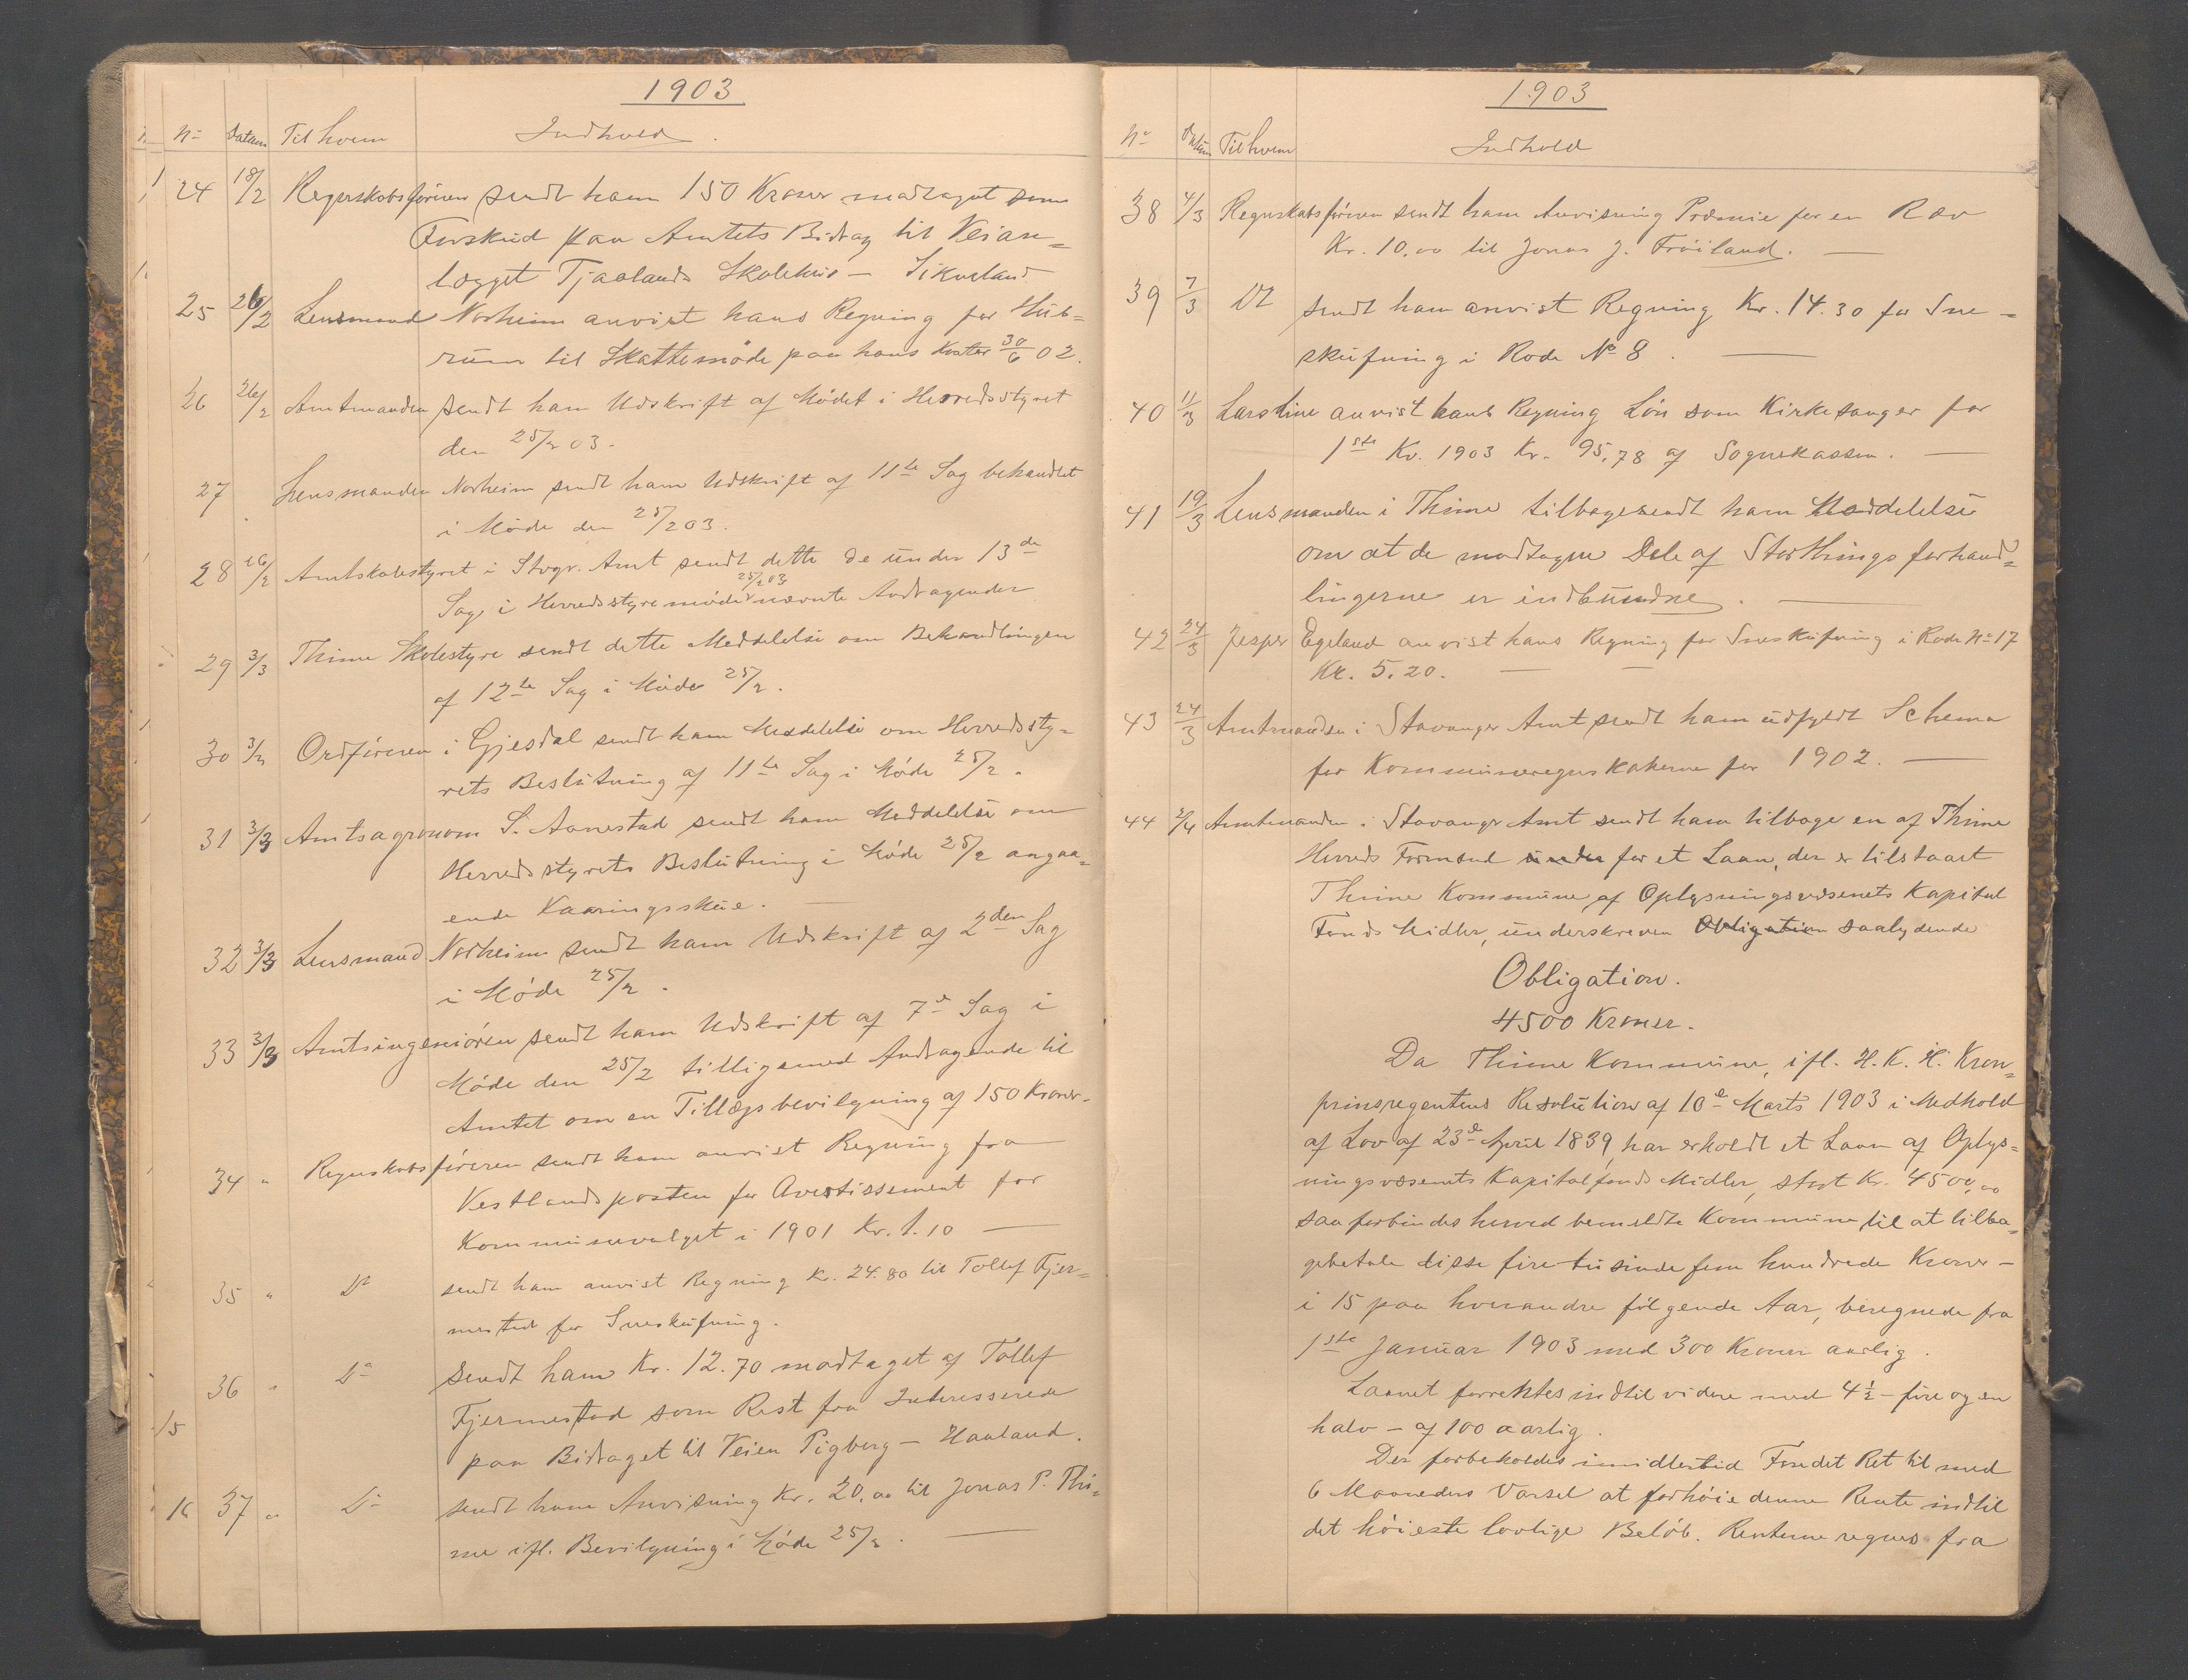 1903
No Datum Til hvem Indhold.
24 18/2 Regnskabsføreren sendt ham 150 Kroner modtaget som
Forskud paa Amtets Bidrag til Veian=
lægget Tjaalands Skolehus - Sikveland
25 26/2 Lensmand Norheim anvist hans Regning for Hus=
rum til Skattemøde paa hans Kontor 30/6 02.
26 26/2 Amtmanden sendt ham Udskrift af Mødet i Herredsstyret
den 25/2 03.
27 Lensmanden Norheim sendt ham Udskrift af 11te Sag behandlet
i Møde den 25/2 03.
28 26/2 Amtskolestyret i Stvgr. Amt sendt dette de under 13de
Sag i Herredsstyremøde 25/2 03 nævnte Andragender
29 3/3 Thime Skolestyre sendt dette Meddelelse om Behandlingen
af 12te Sag i Møde 25/2.
30 3/3 Ordføreren i Gjesdal sendt ham Meddelelse om Herredssty=
rets Beslutning af 11te Sag i Møde 25/2.
31 3/3 Amtsagronom S. Aanestad sendt ham Meddelelse om
Herredsstyrets Beslutning i Møde 25/2 angaa=
ende Kaaringsskue.
32 3/3 Lensmand Norheim sendt ham Udskrift af 2den Sag
i Møde 25/2.
33 3/3 Amtsingeniøren sendt ham Udskrift af 7de Sag i
Møde den 25/2 tilligemed Andragende til
Amtet om en Tillægsbevilgning af 150 Kroner.
34 " Regnskabsføreren sendt ham anvist Regning fra
Vestlandsposten for Avertissement for
Kommunevalget i 1901 Kr. 1.10 —
35 " Do sendt ham anvist Regning Kr. 24.80 til Tollef Fjer=
mestad for Sneskufning.
36 " Do sendt ham Kr. 12.70 modtaget af Tollef
Fjermestad som Rest fra Interesserede
paa Bidraget til Veien Pigberg - Haaland.
37 " Do sendt ham Anvisning Kr. 20,00 til Jonas P. Thi=
me ifl. Bevilgning i Møde 25/2. —
1903
No Datum Til hvem Indhold
38 4/3 Regnskabsføreren sendt ham Anvisning Præmie for en Ræv
Kr. 10,00 til Jonas J. Frøiland. —
39 7/3 Do sendt ham anvist Regning Kr. 14.30 for Sne-
skufning i Rode No 8. —
40 11/3 Lars Line anvist hans Regning Løn som Kirkesanger for
1ste Kv. 1903 Kr. 95,78 af Sognekassen. —
41 19/3 Lensmanden i Thime tilbagesendt ham Meddelelse
om at de modtagne Dele af Storthingsforhand=
lingerne er indbundne. —
42 24/3 Jesper Egeland anvist hans Regning for Sneskufning i Rode No 17
Kr. 5.20. — —
43 24/3 Amtmanden i Stavanger Amt sendt ham udfyldt Schema
for Kommuneregnskaberne for 1902. —
44 2/4 Amtmanden i Stavanger Amt sendt ham tilbage en af Thime
Herreds Formænd under for et Laan, der er tilstaaet
Thime Kommune af Oplysningsvæsenets Kapital
Fonds Midler, underskreven Obligation saalydende
Obligation.
4500 Kroner.
Da Thime Kommune, ifl. H. K. H. Kron=
prinsregentens Resolution af 10de Marts 1903 i Medhold
af Lov af 23de April 1839, har erholdt et Laan af Oplys=
ningsvæsenets Kapitalfonds Midler, stort Kr. 4500,00
saa forbindes herved bemeldte Kommune til at tilba=
gebetale disse fire tusinde fem hundrede Kroner -
i 15 paa hverandre følgende Aar, beregnede fra
1ste Januar 1903 med 300 Kroner aarlig.
Laanet forrentes indtil videre med 4½ - fire og en
halv - af 100 aarlig.
Der forbeholdes imidlertid Fondet Ret til med
6 Maaneders Varsel at forhøie denne Rente indtil
det høieste lovlige Beløb. Renterne regnes fra